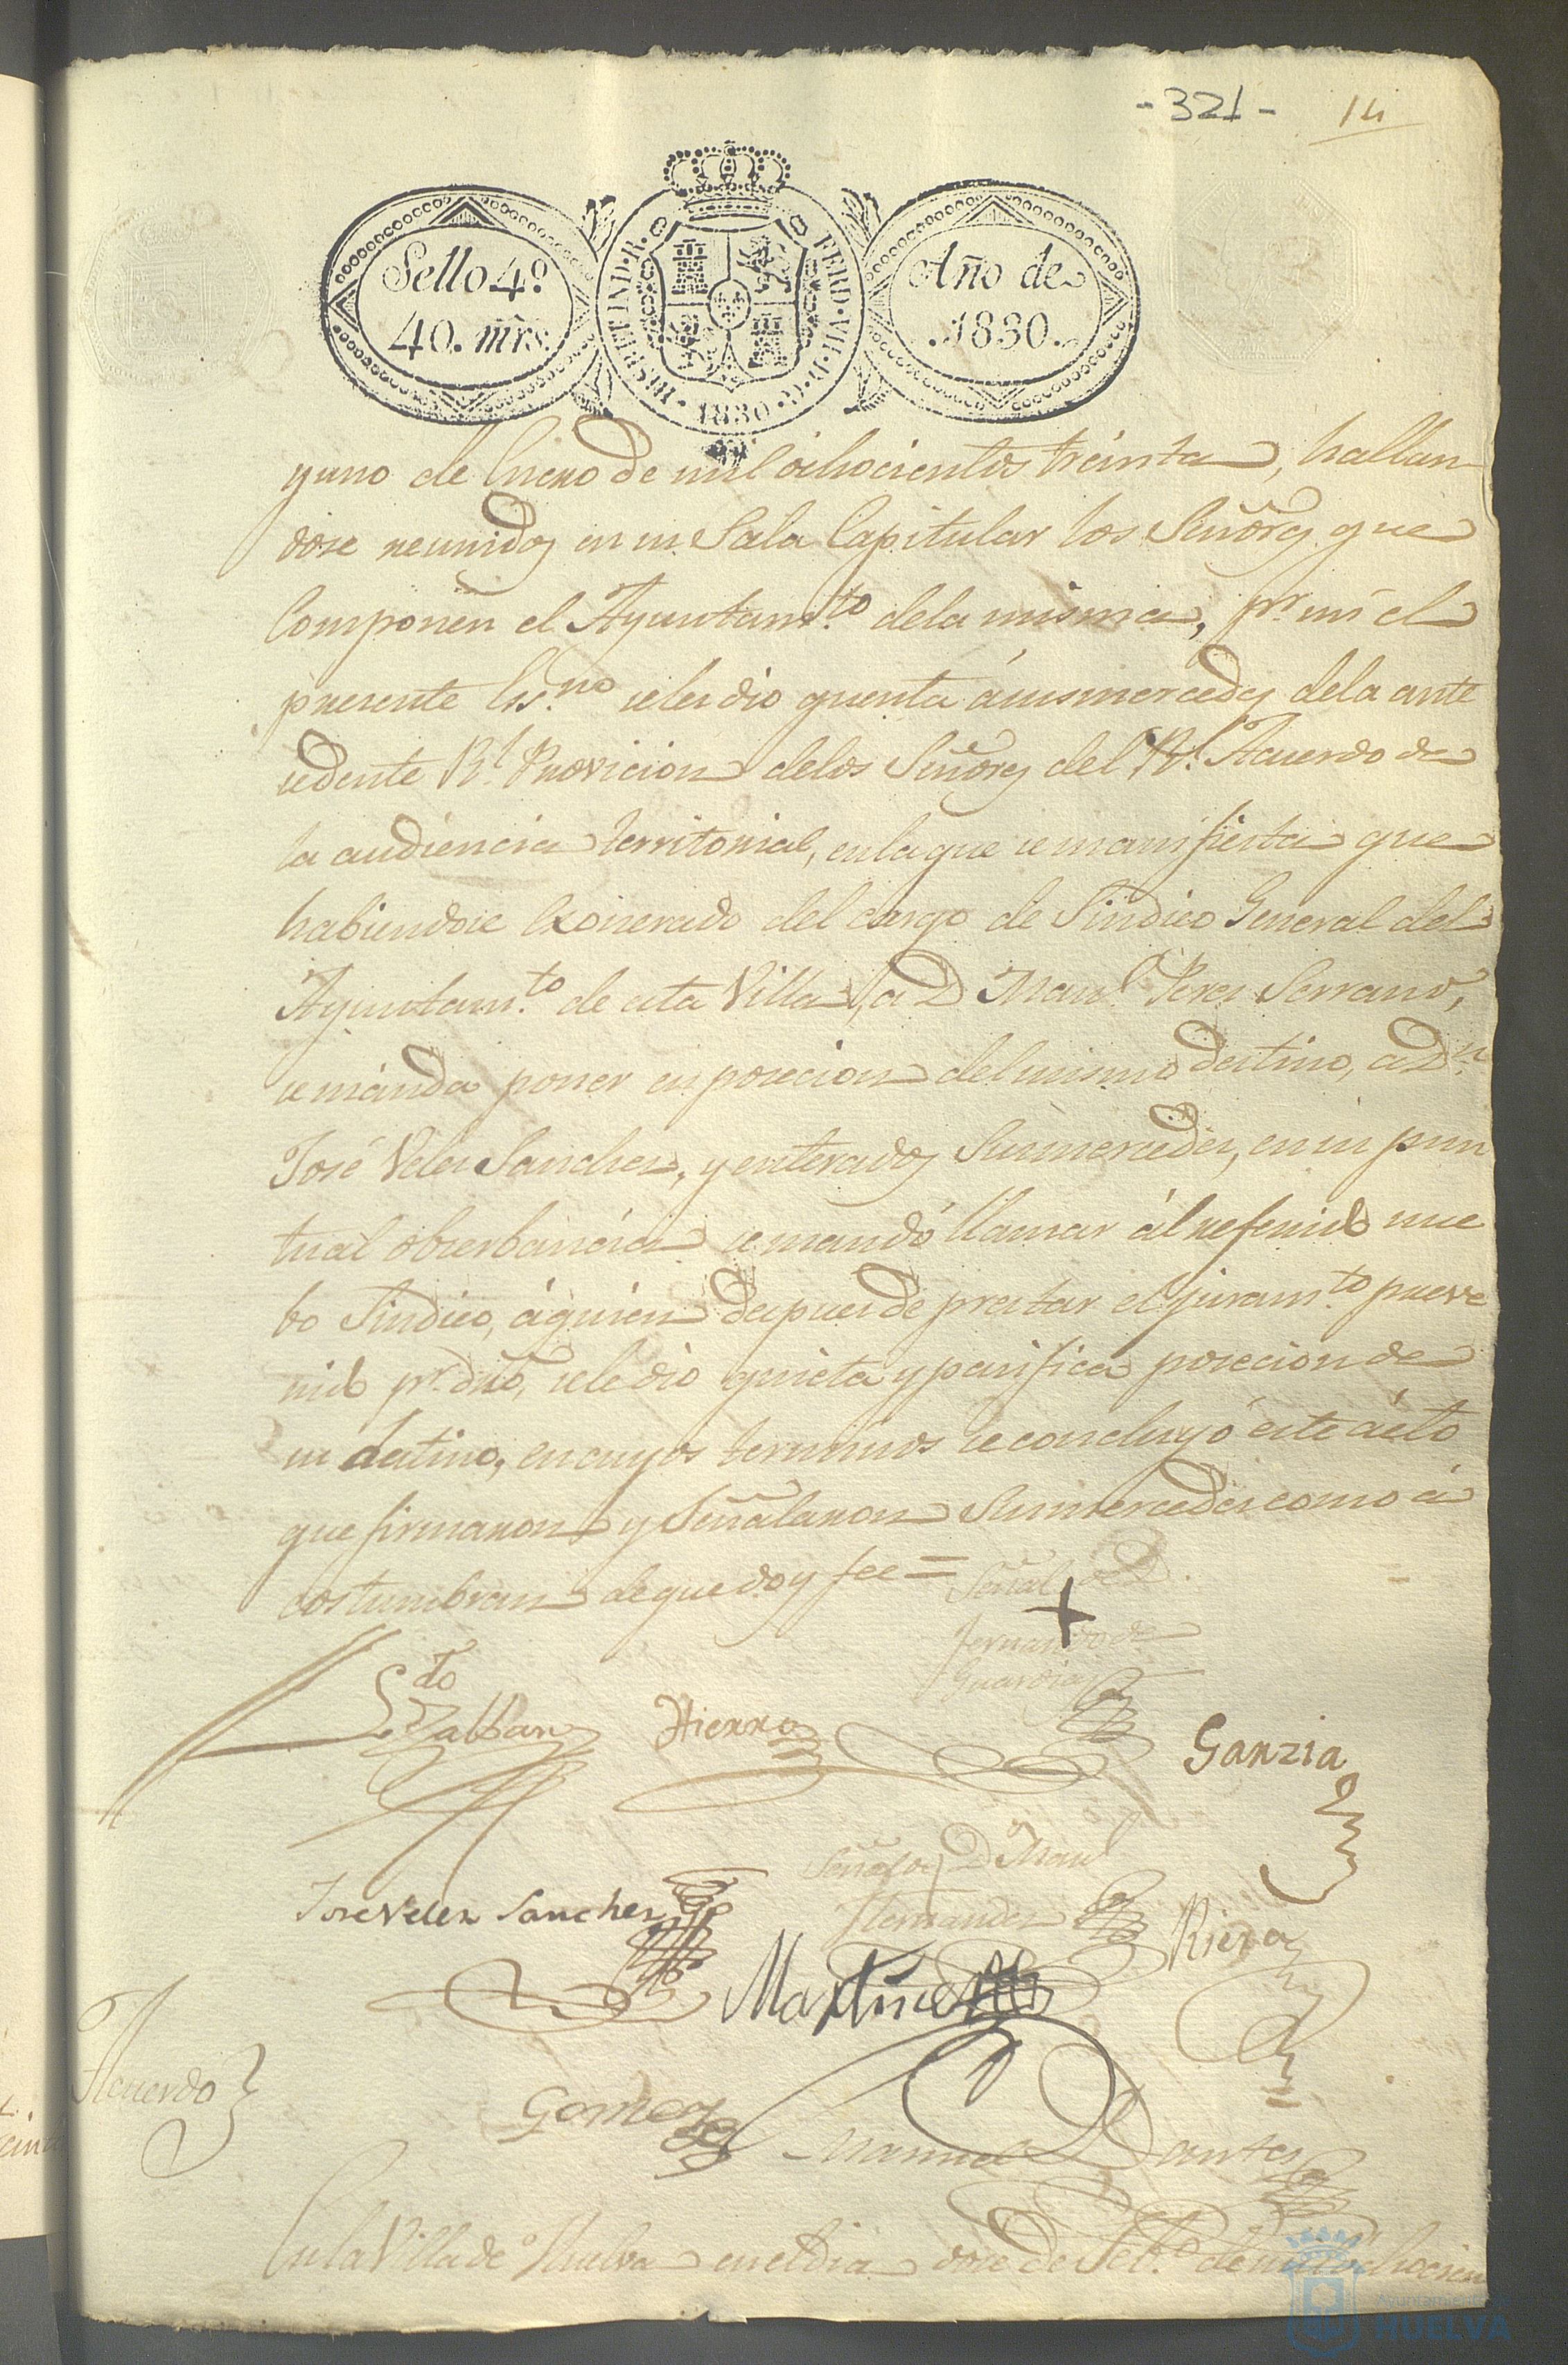 -321- 14
Sello 4º.
40. mrs.
HISP. ET IND. R. FERD. VII. D. G. 1830
Año de
1830.
yuno de Enero de mil ochocientos treinta, hallan
dose reunidos en su Sala Capitular los Señores que
Componen el Ayuntamto dela misma, pr. mi el
presente Esno. seles dio quenta ásusmercedes dela ante
cedente Rl. Provicion delos Señores del Rl. Acuerdo de
la audiencia territorial, enlaque se manifiesta que
habiendose Exonerado del cargo de Sindico General del
Ayuntamto. de esta Villa, a D Manl. Peres Serrano,
se manda poner en posecion delmismo destino, a Dn.
José Veles Sanches, y enterados Susmercedes, en su pun
tual obserbancia se mandó llamar ál referido nue
bo Sindico, áquien despues de prestar el juramto. preve
nido pr. dro, sele dio quieta y pasifica posecion de
su destino, en cuyos terminos se concluyó este ácto
que firmaron y Señalaron Susmercedes como á
costumbran de que doy fee = Señal de D.
Fernando de
Guardia
Ldo
Zalban Hierro
Garzia
Señal de D Manl
Jose Velez Sanchez Hernandez Riera
Martinez
Acuerdo
Gomez
Manuel Dantes
En la Villa de Huelva en el dia doce de Febo. de mil ochocien
Ayuntamiento de
HUELVA